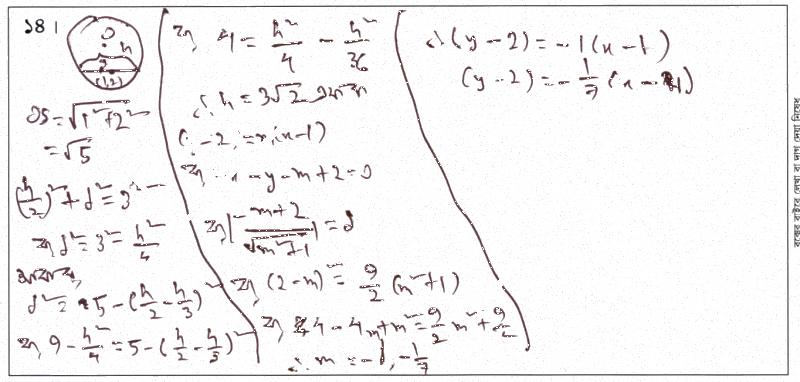 ১৪।
O
h
(1,2)
OS = √1²+2²
= √5
(h/2)² + d² = 3²
বা, d² = 3² - h²/4
আবার,
d² = 5 - (h/2 - h/3)²
বা, 9 - h²/4 = 5 - (h/2 - h/3)²
বা, 4 = h²/4 - h²/36
∴ h = 3√2
-2, = m(x-1)
বা, - y - m + 2 = 0
বা, |(-m+2)/√(m²+1)| = d
বা, (2-m)² = 9/2 (m²+1)
বা, 4 - 4m + m² = 9/2 m² + 9/2
∴ m = -1, -1/7
∴ (y-2) = -1(x-1)
(y-2) = -1/7 (x-1)
বক্সের বাইরে লেখা বা দাগ দেয়া নিষেধ